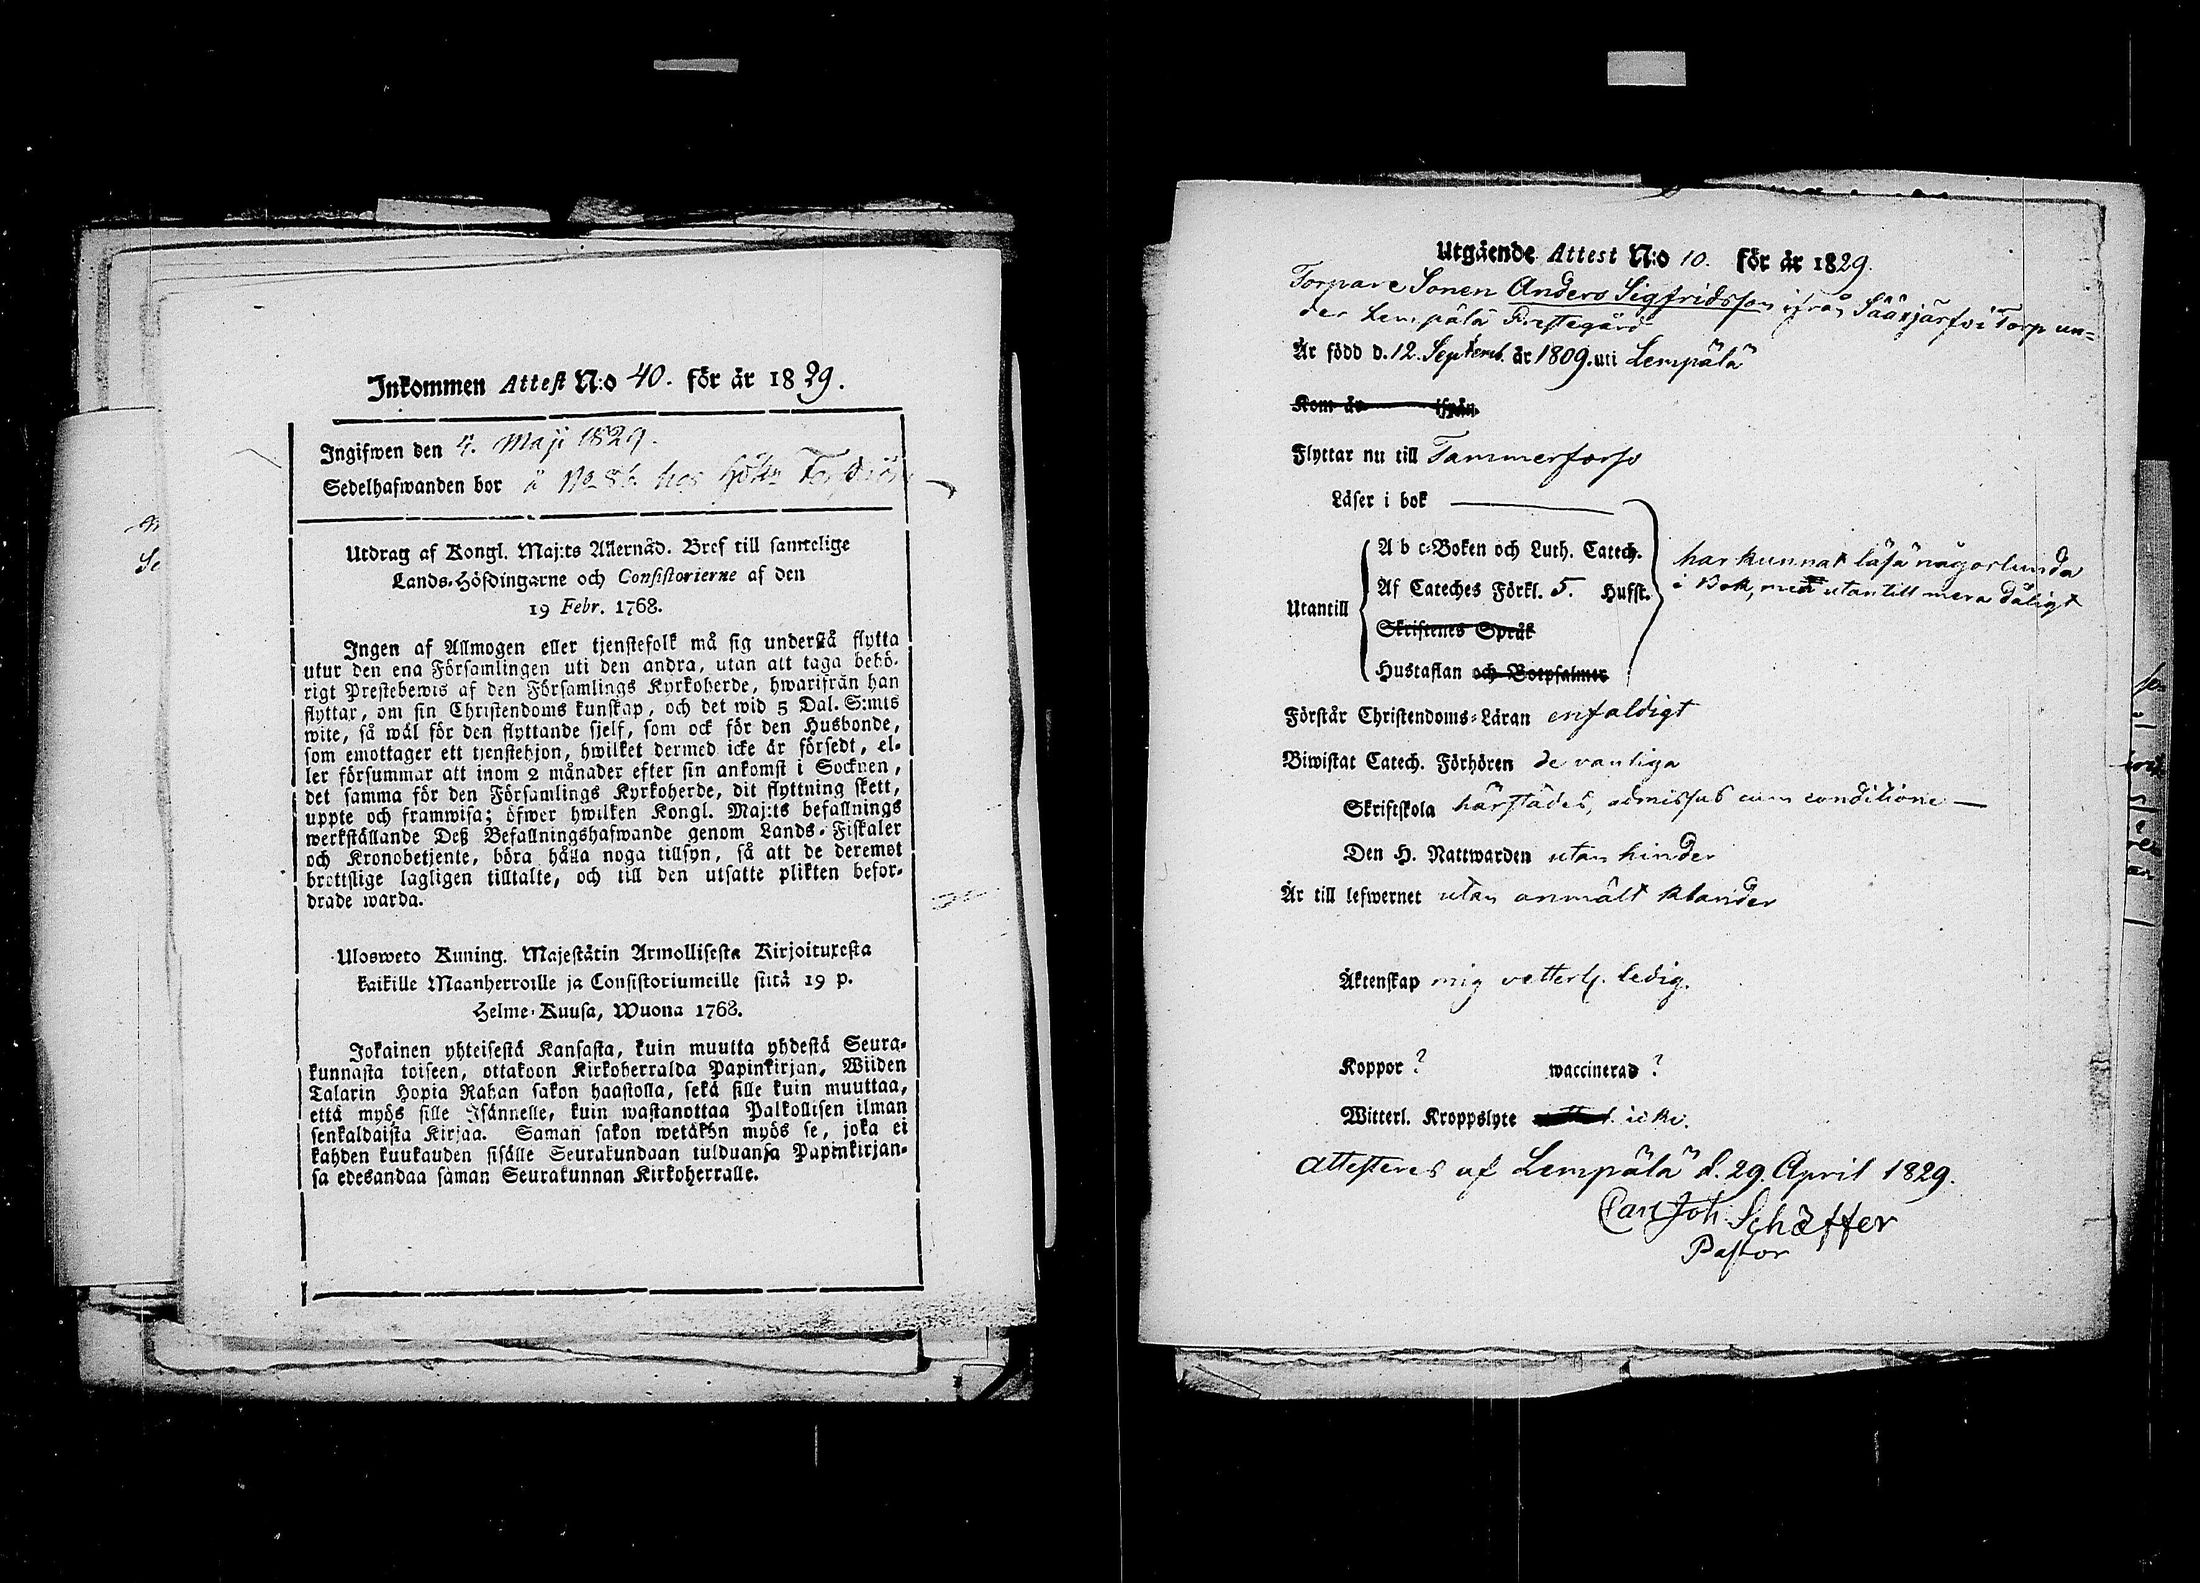 Inkommen Attest N:o 40. för år 1829.
Ingifwen den 4. Maji 1829.
Sedelhafwanden bor å No 86. hos
Utdrag af Kongl. Maj:ts Allernåd. Bref till samtelige
Lands-Höfdingarne och Consistorierne af den
19 Febr. 1768.
Ingen af Allmogen eller tjenstefolk må sig understå flytta
utur den ena Församlingen uti den andra, utan att taga behö-
rigt Prestebewis af den Församlings Kyrkoherde, hwarifrån han
flyttar, om sin Christendoms kunskap, och det wid 5 Dal. S:mts
wite, så wäl för den flyttande sjelf, som ock för den Husbonde,
som emottager ett tjenstehjon, hwilket dermed icke är försedt, el-
ler försummar att inom 2 månader efter sin ankomst i Socknen,
det samma för den Församlings Kyrkoherde, dit flyttning skett,
uppte och framwisa; öfwer hwilken Kongl. Maj:ts befallnings
werkställande Deß Befallningshafwande genom Lands-Fiskaler
och Kronobetjente, böra hålla noga tillsyn, så att de deremot
brottslige lagligen tilltalte, och till den utsatte plikten befor-
drade warda.
Ulosweto Kuning. Majestätin Armollisesta Kirjoituxesta
kaikille Maanherroille ja Consistoriumeille siitä 19 p.
Helme-Kuusa, Wuona 1768.
Jokainen yhteisestä Kansasta, kuin muutta yhdestä Seura-
kunnasta toiseen, ottakoon Kirkoherralda Papinkirjan, Wiiden
Talarin Hopia Rahan sakon haastolla, sekä sille kuin muuttaa,
että myös sille Isännelle, kuin wastanottaa Palkollisen ilman
senkaldaista Kirjaa. Saman sakon wetäkön myös se, joka ei
kahden kuukauden sisälle Seurakundaan tulduansa Papinkirjan-
sa edesandaa saman Seurakunnan Kirkoherralle.
Utgående Attest N:o 10. för år 1829.
Torpare Sonen Anders Sigfridsson ifrån Sääxjärfvi Torp un-
der Lempälä Prestegård
Är född d. 12. Septemb. år 1809. uti Lempälä
Kom år ifrån
Flyttar nu till Tammerfors
Läser i bok
Utantill
A b c-Boken och Luth. Catech.
Af Cateches Förkl. 5. Hufst.
Skriftenes Språk
Hustaflan och Botpsalmer
har kunnat läsa någorlunda
i Bok, men utantill mera dåligt
Förstår Christendoms-Läran enfaldigt
Biwistat Catech. Förhören de vanliga
Skriftskola härstädes, admissus cum conditione
Den H. Nattwarden utan hinder
Är till lefwernet utan anmält klander
Äktenskap mig vetterl. ledig.
Koppor ? waccinerad ?
Witterl. Kroppslyte icke.
Attesteras af Lempälä d. 29. April 1829.
Carl Joh. Schæffer
Pastor